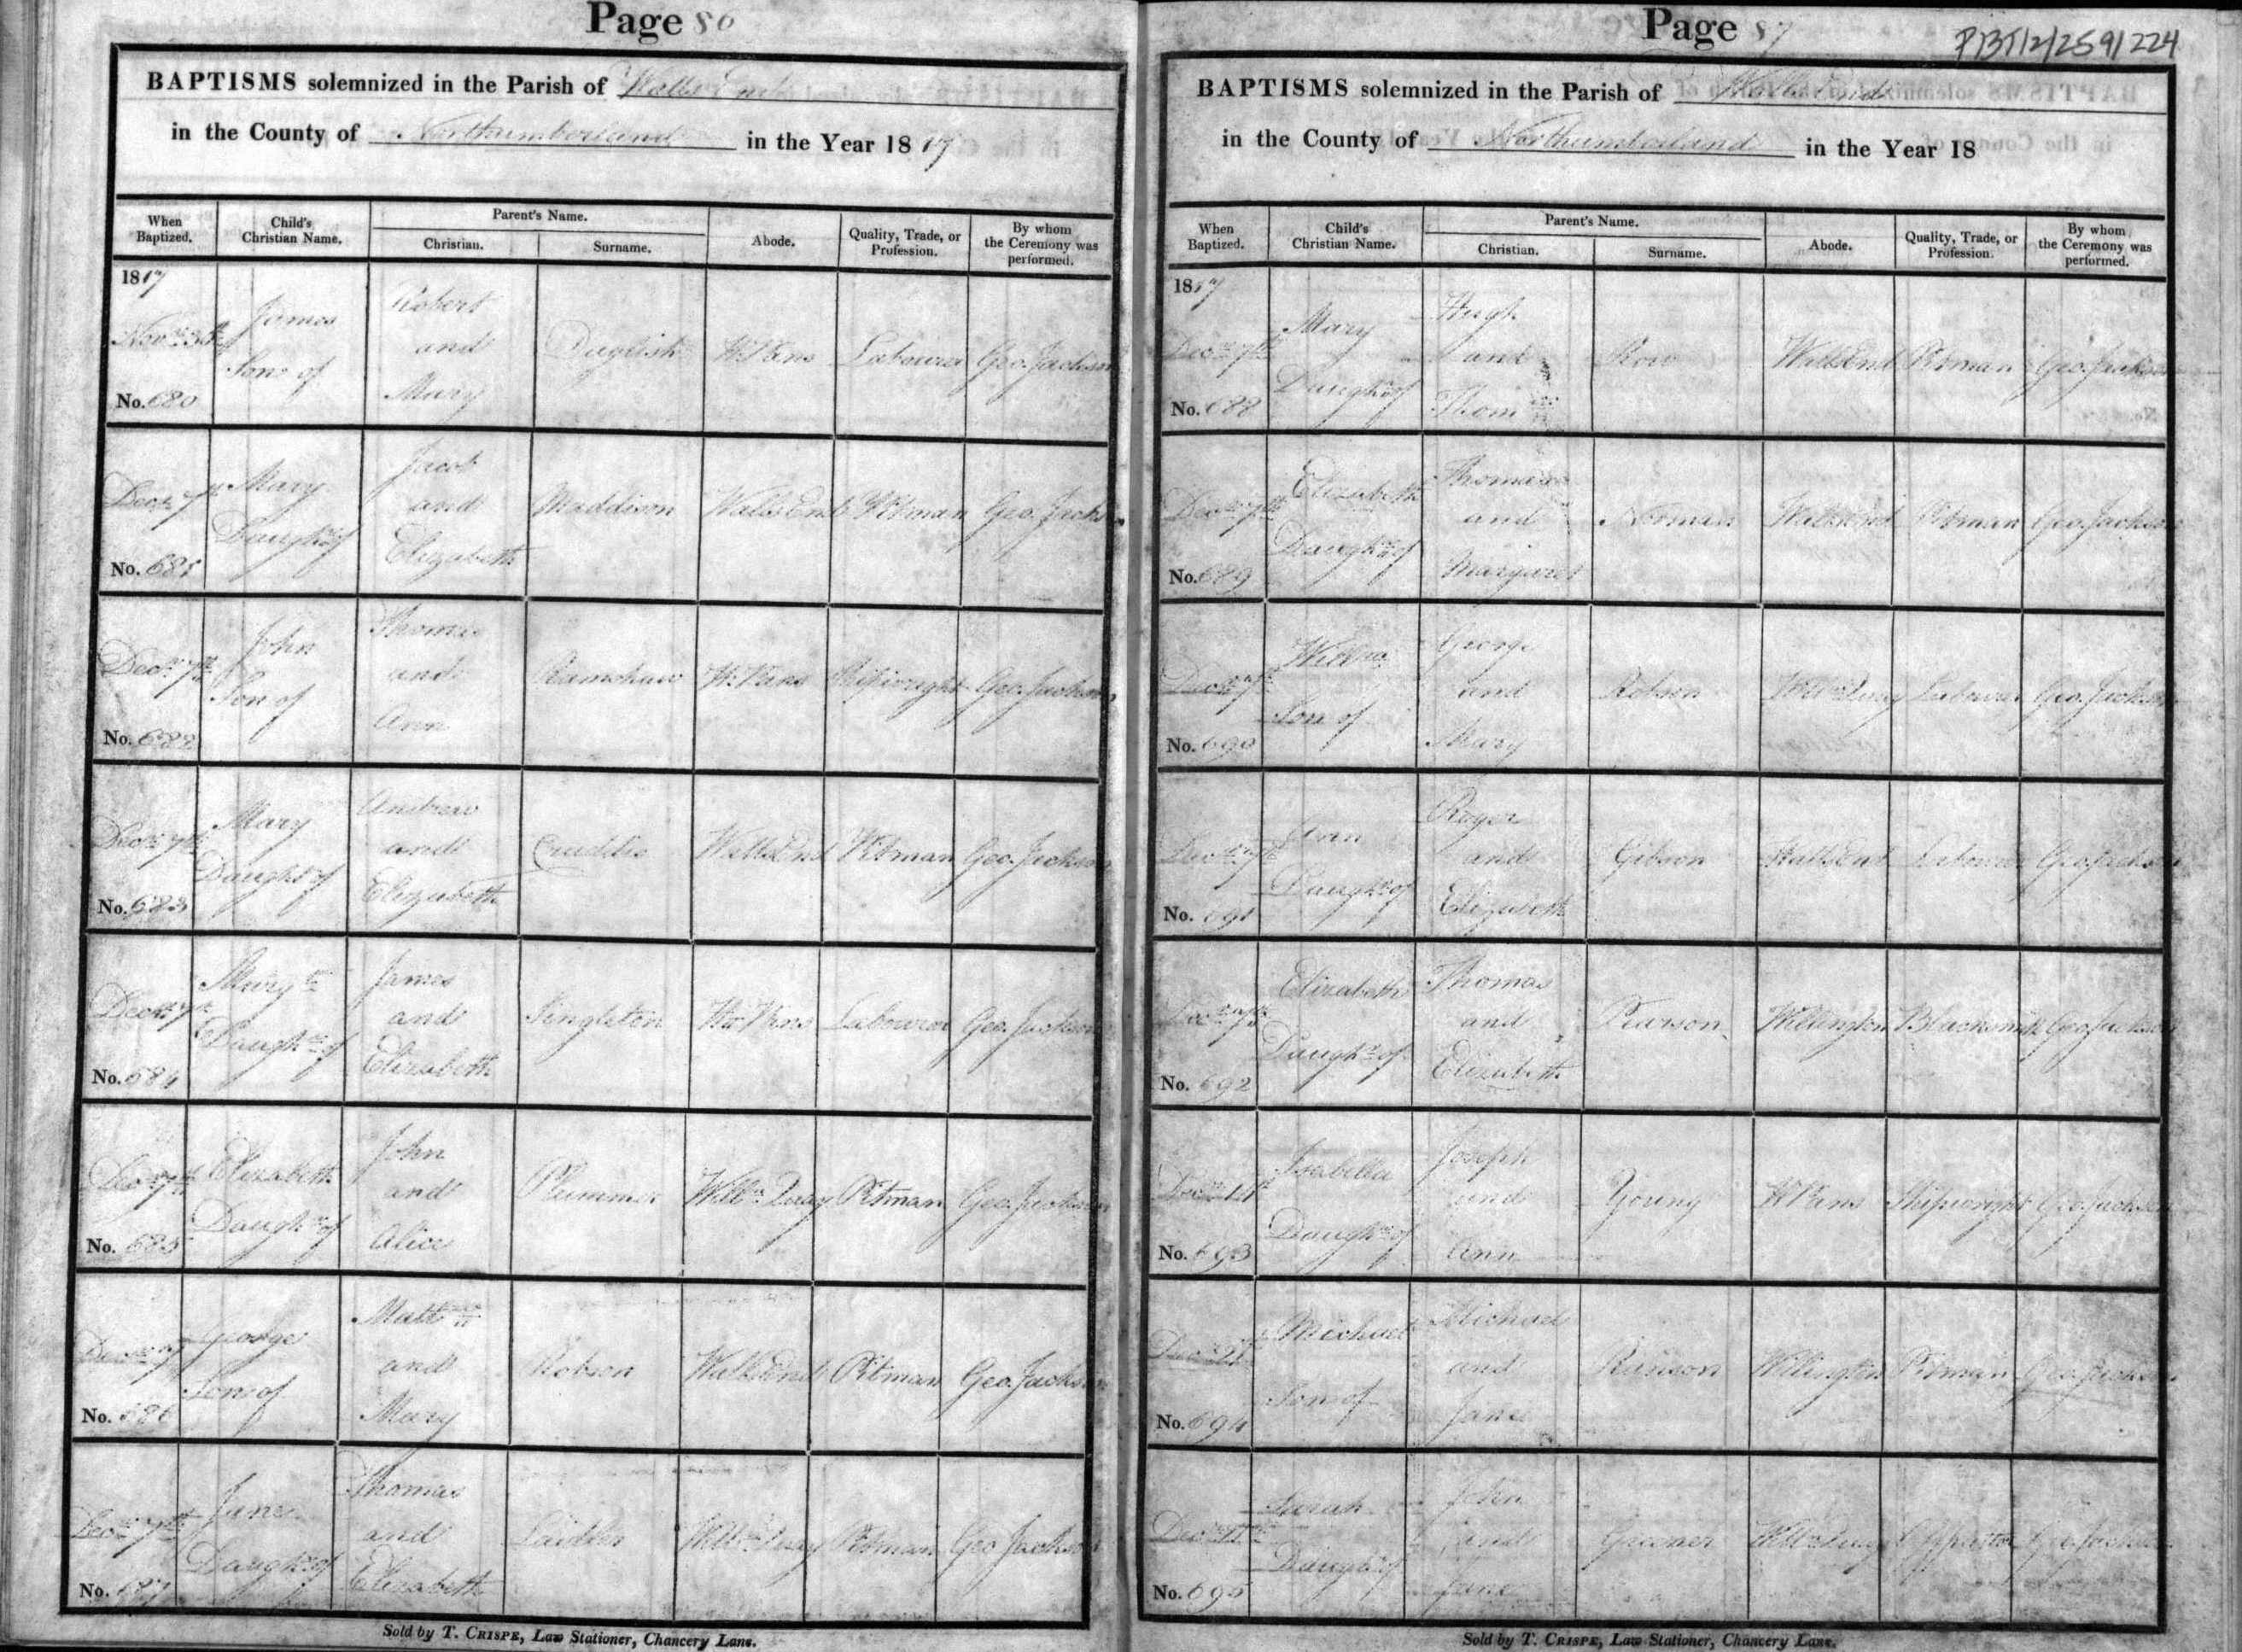 Page 86
BAPTISMS solemnized in the Parish of Walls End
in the County of Northumberland in the Year 1817
When Baptized.
Child's Christian Name.
Parent's Name.
Christian.
Surname.
Abode.
Quality, Trade, or Profession.
By whom the Ceremony was performed.
1817
James
Son of
Robert
and
Mary
Labourer Geo. Jackson
No. 680
Decr 7th
Mary
Daughr of
Jacob
and
Elizabeth
Maddison Walls End Pitman Geo. Jackson
No. 681
Decr 7th
John
Son of
Thomas
and
Ann
Ramshaw Shipwright Geo. Jackson
No. 682
Decr 7th
Mary
Daughr of
Andrew
and
Elizabeth
Walls End Pitman Geo. Jackson
No. 683
Decr 7th
Mary
Daughr of
James
and
Elizabeth
Singleton Labourer Geo. Jackson
No. 684
Decr 7th
Elizabeth
Daughr of
John
and
Alice
Plummer Willn Quay Pitman Geo. Jackson
No. 685
Decr 7
George
Son of
Mattw
and
Mary
Robson Walls End Pitman Geo. Jackson
No. 686
Decr 7th
Jane
Daughr of
Thomas
and
Elizabeth
Laidler Willn Quay Pitman Geo. Jackson
No. 687
Sold by T. CRISPE, Law Stationer, Chancery Lane.
Page 87
P/BT/2/259/224
BAPTISMS solemnized in the Parish of Walls End
in the County of Northumberland in the Year 18
When Baptized.
Child's Christian Name.
Parent's Name.
Christian.
Surname.
Abode.
Quality, Trade, or Profession.
By whom the Ceremony was performed.
1817
Decr 7th
Mary
Daughr of
Hugh
and
Row Walls End Pitman Geo. Jackson
No. 688
Decr 7th
Elizabeth
Daughr of
Thomas
and
Margaret
Walls End Pitman Geo. Jackson
No. 689
Decr 7th
Willm
Son of
George
and
Mary
Robson Willn Quay Labourer Geo. Jackson
No. 690
Decr 7th
Ann
Daughr of
Roger
and
Elizabeth
Gibson Walls End Labourer Geo. Jackson
No. 691
Decr 7th
Elizabeth
Daughr of
Thomas
and
Elizabeth
Pearson Willington Blacksmith Geo. Jackson
No. 692
Isabella
Daughr of
Joseph
and
Ann
Young Shipwright Geo. Jackson
No. 693
Decr 21st
Michael
Son of
Michael
and
Jane
Willington Pitman Geo. Jackson
No. 694
Sarah
Daughr of
John
and
Jane
Greener Willn Quay Geo. Jackson
No. 695
Sold by T. CRISPE, Law Stationer, Chancery Lane.